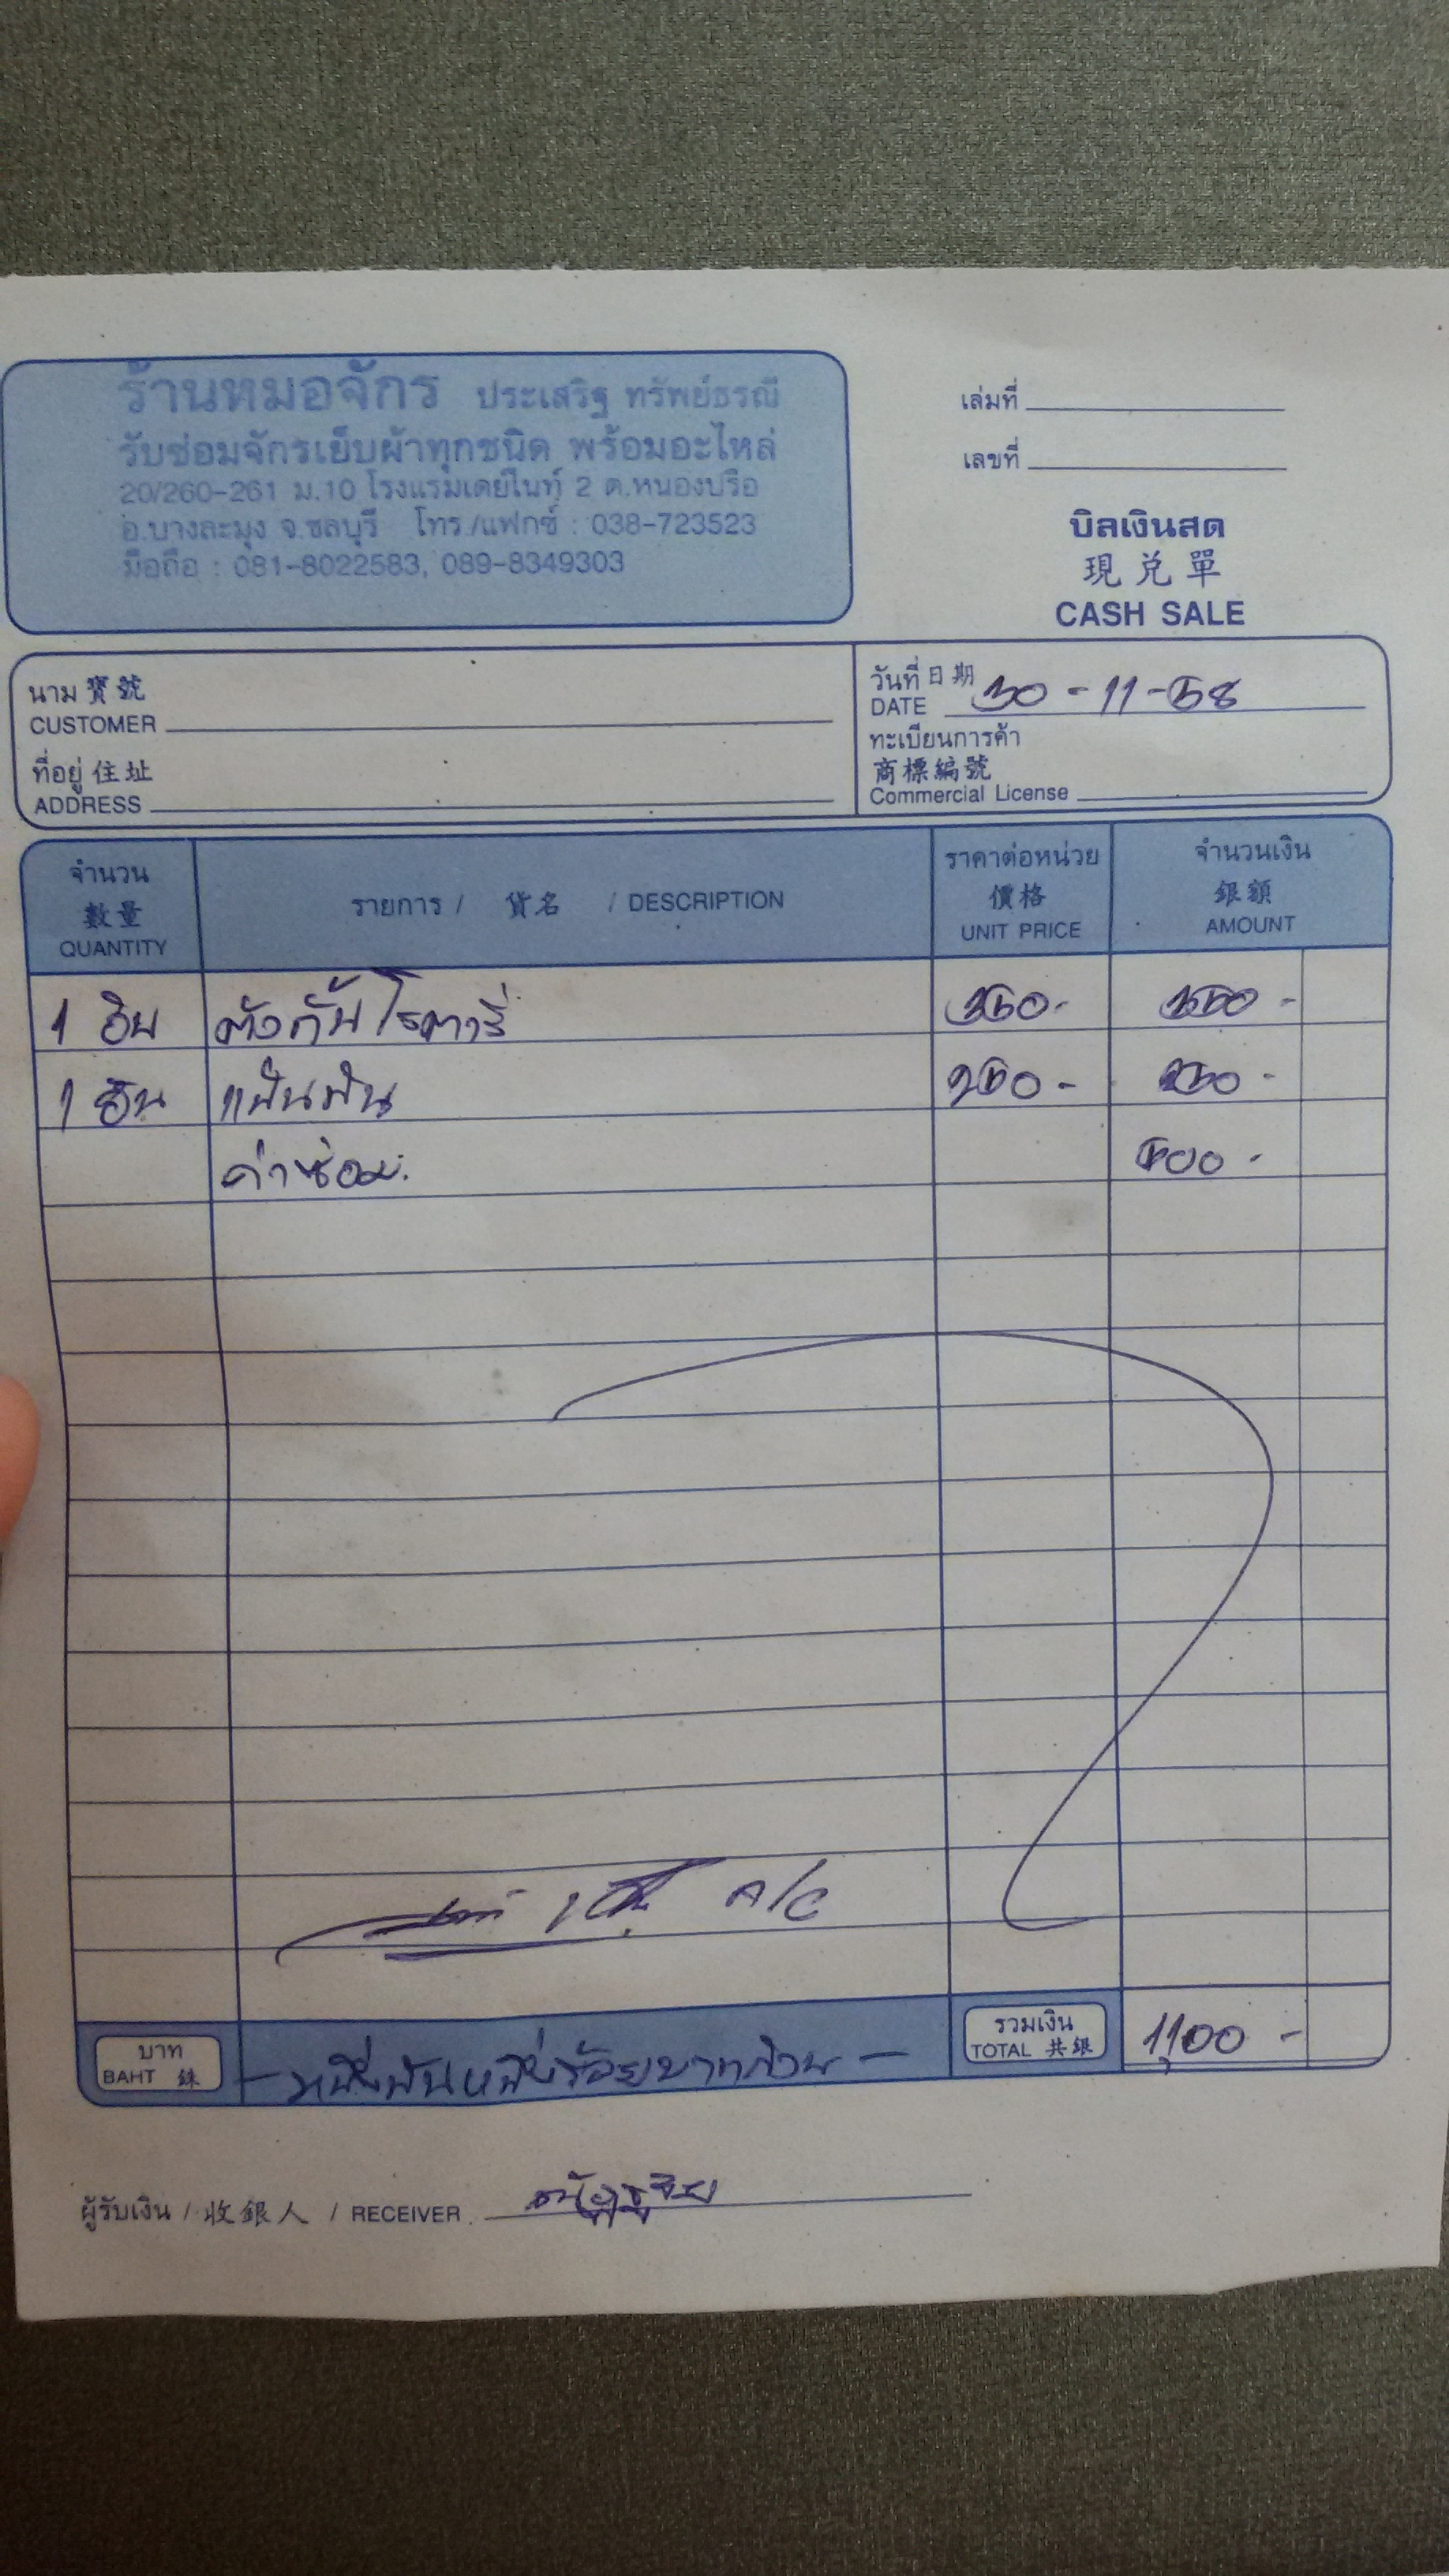 ร้านหมอจักร ประเสริฐ ทรัพย์ธรณี
รับซ่อมจักรเย็บผ้าทุกชนิด พร้อมอะไหล่
20/260-261 ม.10 โรงแรมเดย์ไนท์ 2 ต.หนองปรือ
อ.บางละมุง จ.ชลบุรี โทร./แฟกซ์ : 038-723523
มือถือ : 081-8022583, 089-8349303
เล่มที่
เลขที่
บิลเงินสด
現兌單
CASH SALE
นาม 寶號
CUSTOMER
ที่อยู่ 住址
ADDRESS
วันที่ 日期
DATE 30-11-58
ทะเบียนการค้า
商標編號
Commercial License
จำนวน
數量
QUANTITY
รายการ / 貨名 / DESCRIPTION
ราคาต่อหน่วย
價格
UNIT PRICE
จำนวนเงิน
銀額
AMOUNT
1 อัน ตัวกั้นโรตารี่ 350.- 350 -
1 อัน แป้นฟัน 250 - 250 -
ค่าซ่อม 500 -
A/C
บาท
BAHT 銖
- หนึ่งพันหนึ่งร้อยบาทถ้วน -
รวมเงิน
TOTAL 共銀
1,100 -
ผู้รับเงิน / 收銀人 / RECEIVER